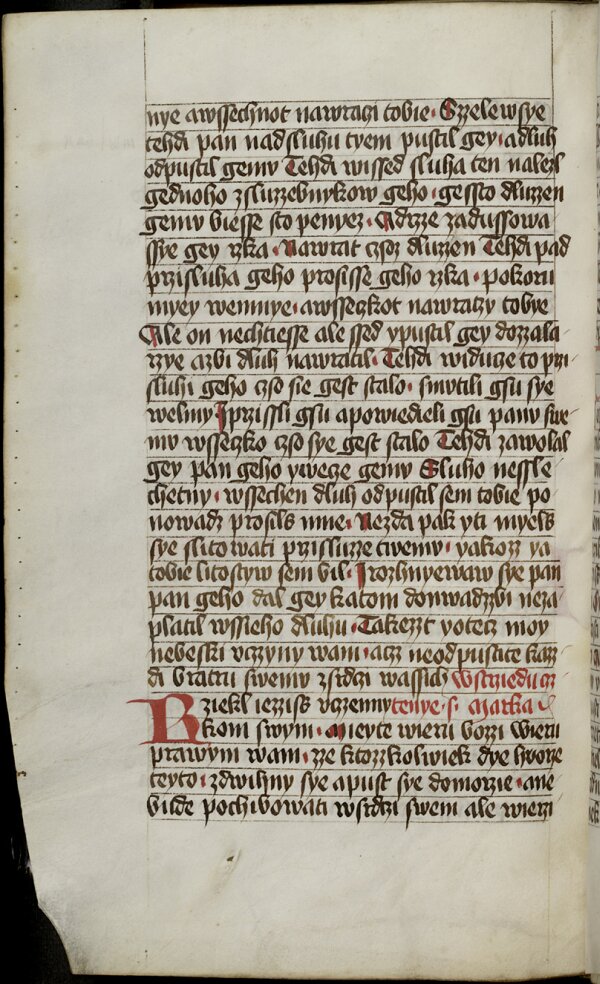 nye awssechnot nawraczi tobie · Szzelew sye
tehdi pan nad sluhu tyem pustil gey · a dluh
odpustil gemv Tehdi wissed sluha ten nalezl
gednoho z sluzzebnykow geho · gessto dluzzen
gemv biesse sto penyez · Adrzze zadussowa
ssye gey rzka · Nawrat czsoz dluzzen Tehdi pad
przi sluha geho prosisse geho rzka · pokoru
myey wemnye · awsseczkot nawraczy tobye
Ale on nechtiesse ale ssed ypustil gey dozzala
rzye azbi dluh nawratil · Tehdi widucze to przi
sluhi geho czso sie gest stalo · smutili gsu sye
welmy I przissli gsu apowiedieli gsu panv swe
mv wsseczko czso sye gest stalo Tehdi zawolal
gey pan geho ywecze gemv Sluho nessle
chetny · wssechen dluh odpustil sem tobie po
nowadz prosils mne · Nezda pak yti myels
sye slitowati przi sluzze twemv · yakozz ya
tobie litostyw sem bil · I rozhnyewaw sye pan
pan geho dal gey katom donwadzzbi neza
platil wssieho dluhu · Takezzt yotecz moy
nebeski vczyny wam · acz neodpustite kaz
di bratru swemv z srdczi wassich Wstrziedu cz
Rziekl iezziss vczenny tenye · s · Marka
kom swym · Mieyte wieru bozzi Wieru
prawym wam · zze ktozzkolwiek dye hworze
teyto · zdwihny sye apust sye domorzie · ane
bude pochibowati wsrdczi swem ale wierzi